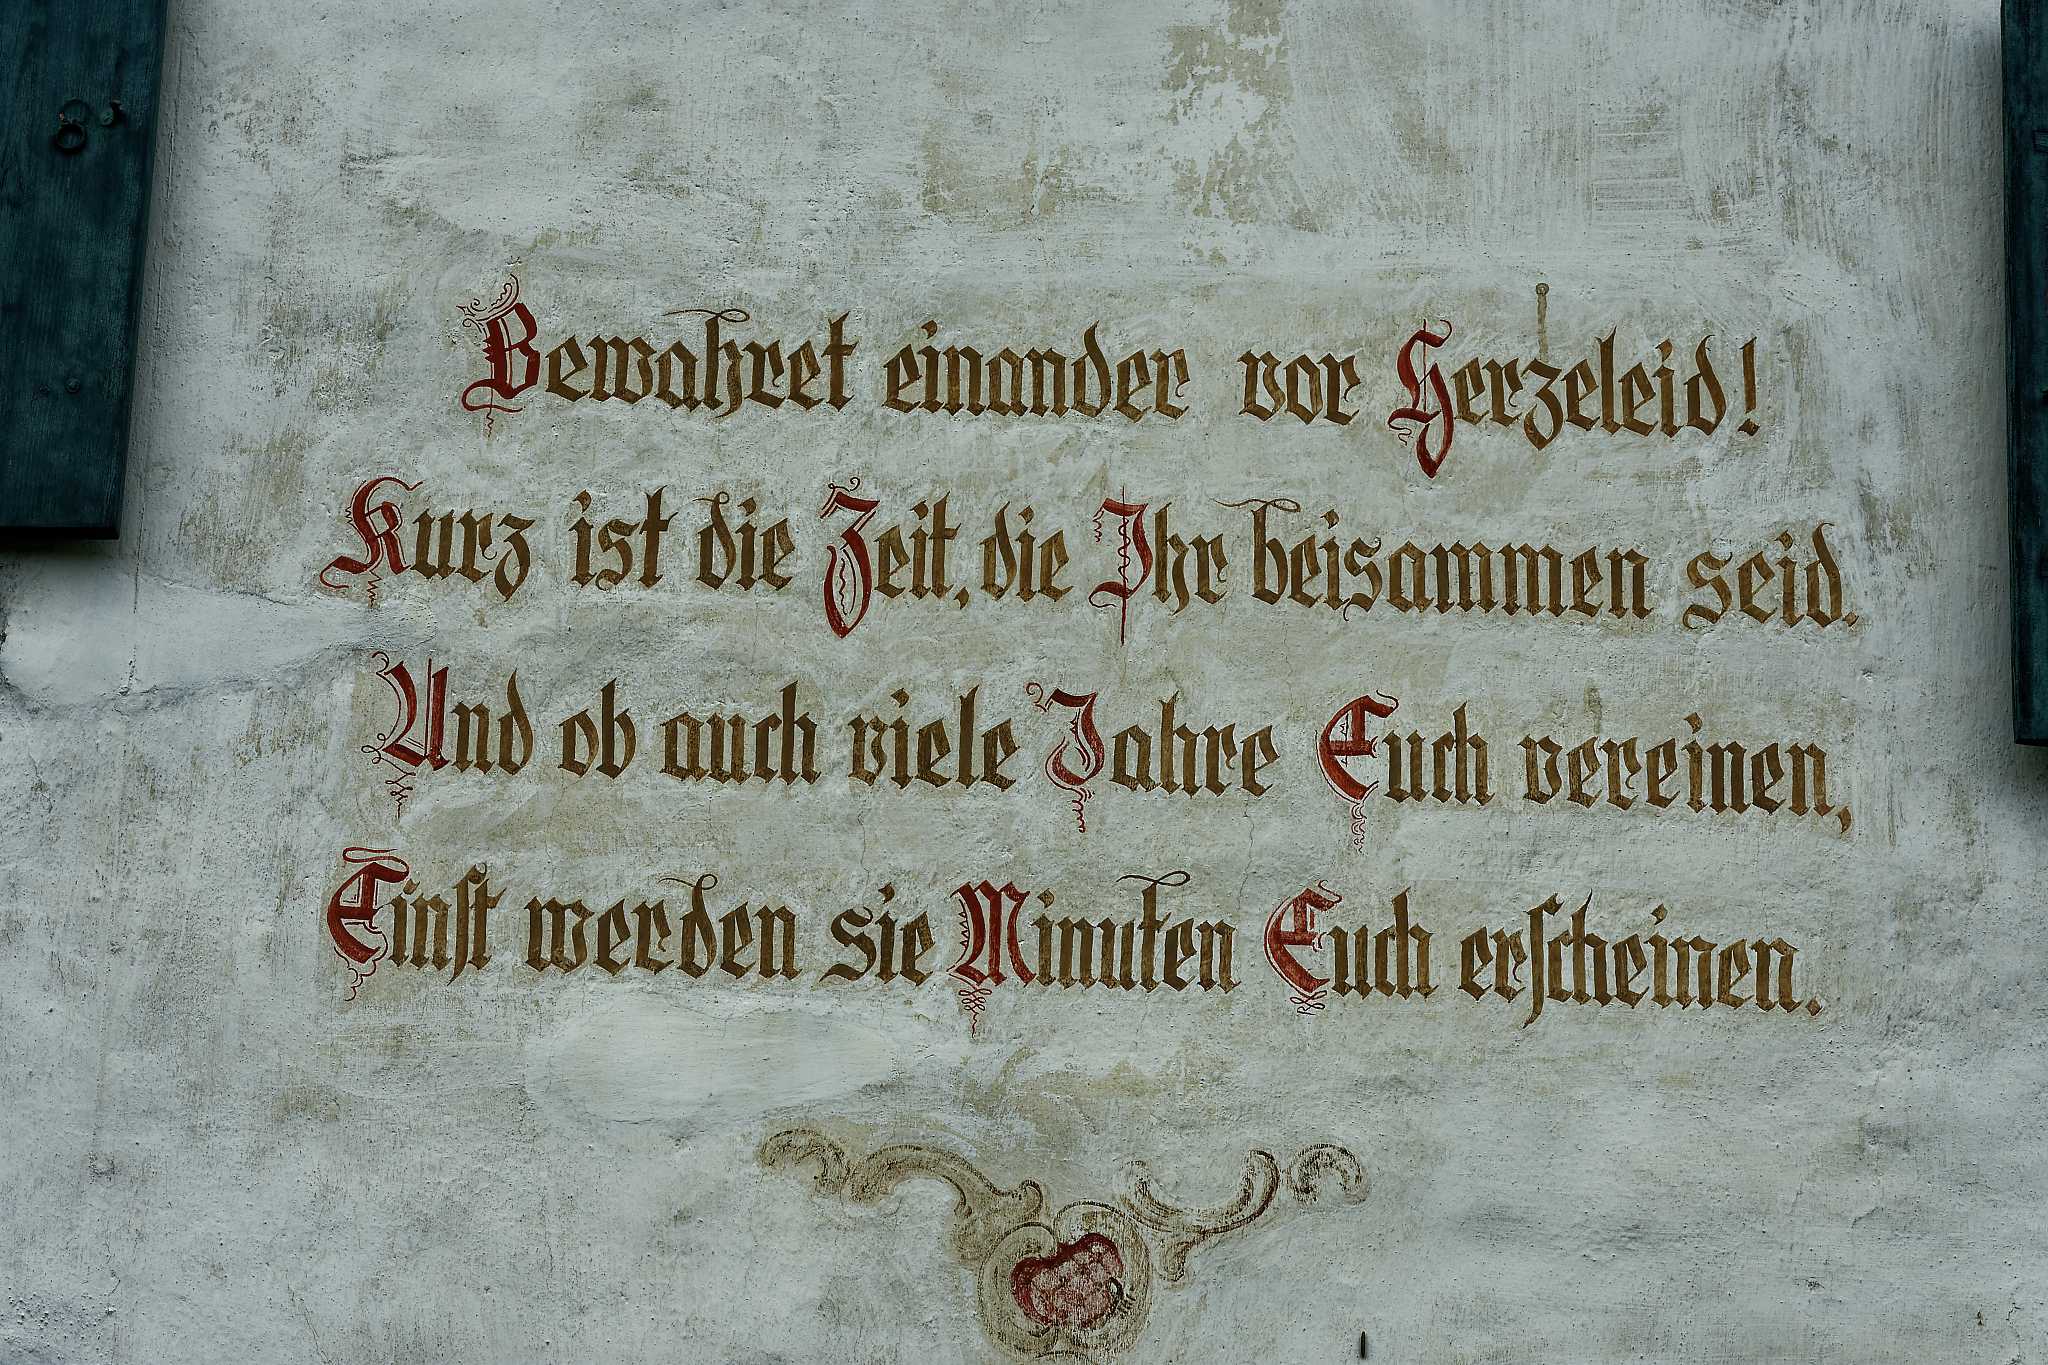 Bewahret einander vor Herzeleid!
Kurz ist die Zeit, die Ihr beisammen seid.
Und ob auch viele Jahre Euch vereinen,
Einst werden sie Minuten Euch erscheinen.